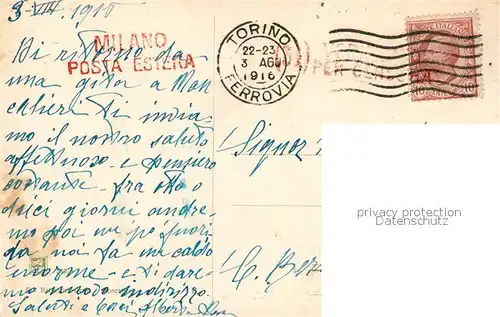 3-VIII. 1916
MILANO
POSTA ESTERA
TORINO
22-23
3 AGO
1916
FERROVIA
PER
10
10
Di ritorno da
una gita a Mon
calieri ti invia
mo il nostro saluto
affettuoso e pensiero
costante - fra otto o
dieci giorni andre
mo poi un po' fuori
da noi fa un caldo
enorme - e ti dare
mo nuovo indirizzo.
Saluti e baci
Signor
C.
privacy protection